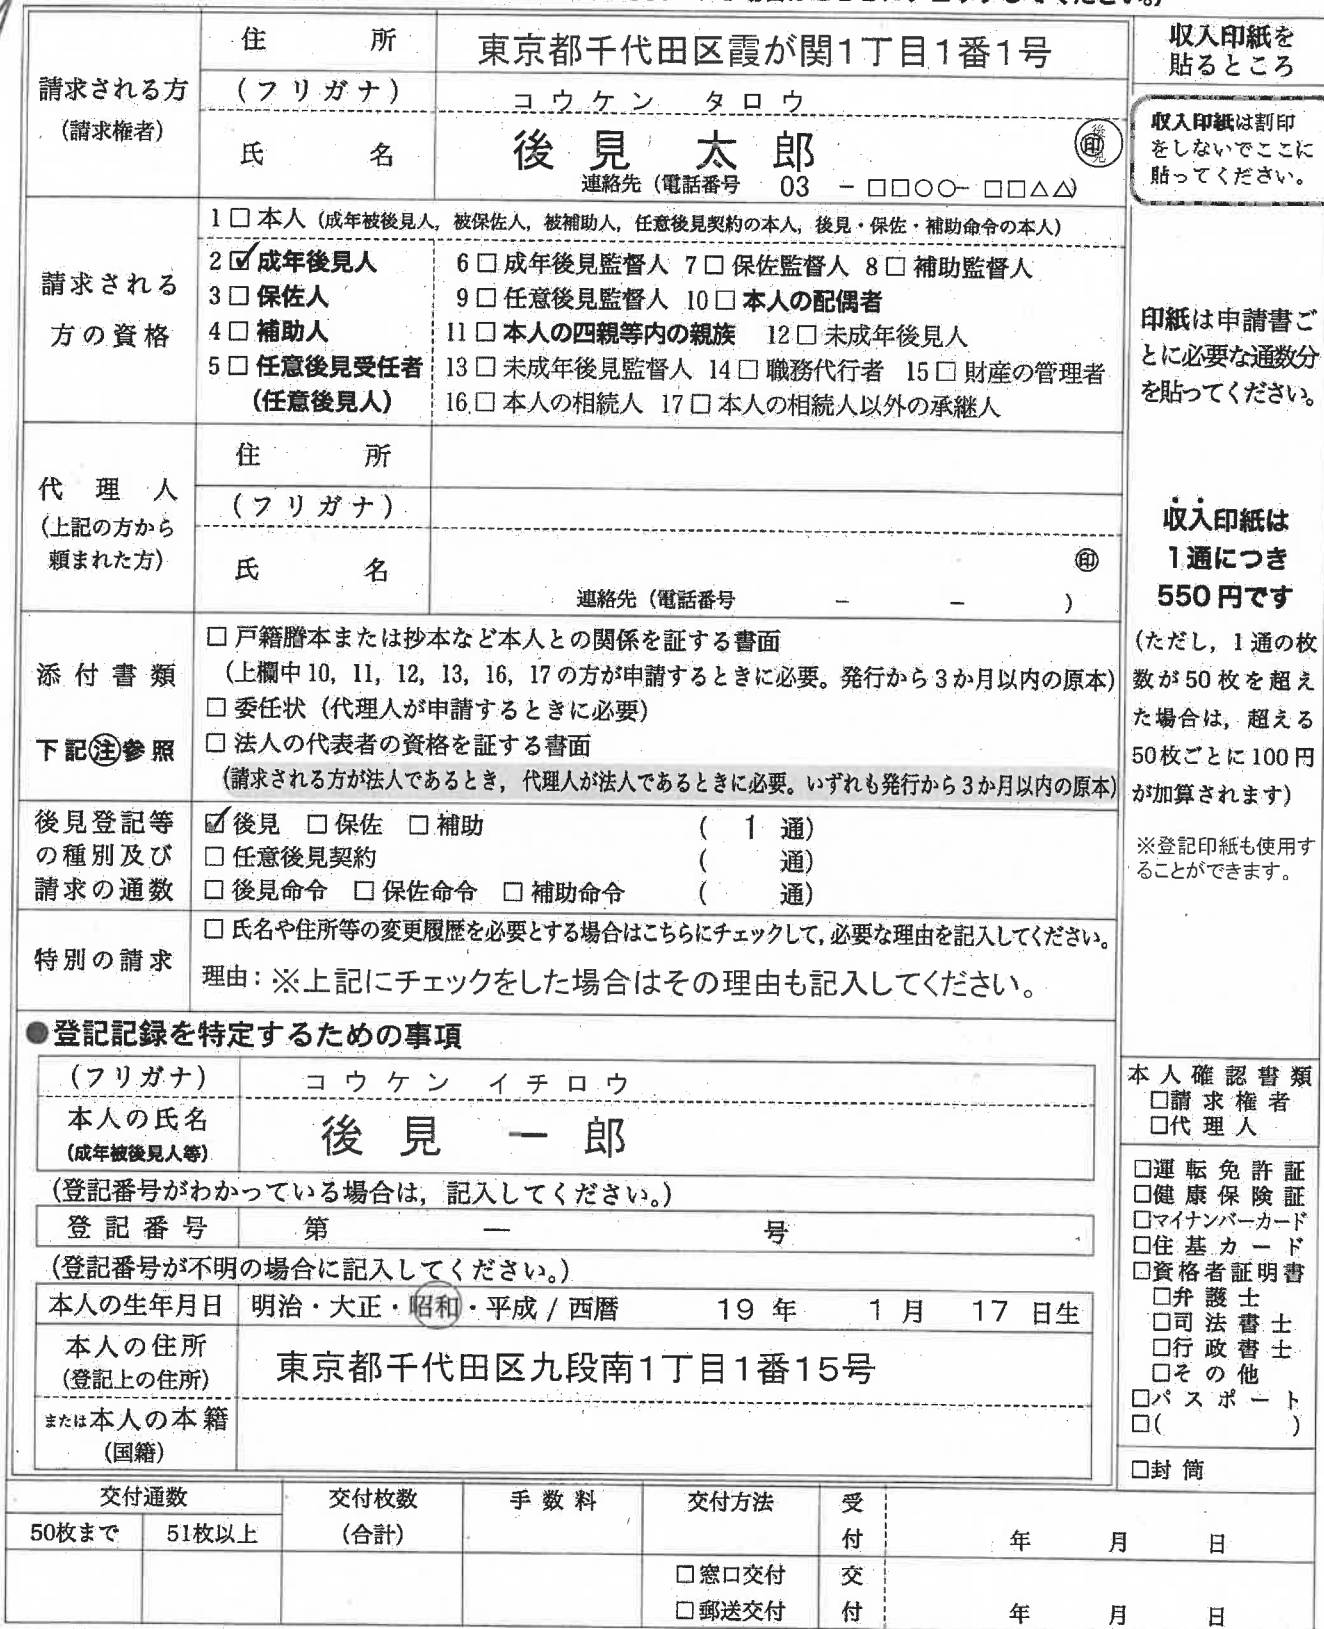 住所 東京都千代田区霞が関1丁目1番1号
請求される方
(請求権者)
(フリガナ) コウケン タロウ
氏名 後見 太郎 ㊞
連絡先（電話番号 03 － □□○○－ □□△△)
請求される
方の資格
1 □ 本人（成年被後見人，被保佐人，被補助人，任意後見契約の本人，後見・保佐・補助命令の本人）
2 ☑ 成年後見人 6 □ 成年後見監督人 7 □ 保佐監督人 8 □ 補助監督人
3 □ 保佐人 9 □ 任意後見監督人 10 □ 本人の配偶者
4 □ 補助人 11 □ 本人の四親等内の親族 12 □ 未成年後見人
5 □ 任意後見受任者 13 □ 未成年後見監督人 14 □ 職務代行者 15 □ 財産の管理者
(任意後見人) 16 □ 本人の相続人 17 □ 本人の相続人以外の承継人
代理人
(上記の方から
頼まれた方)
住所
(フリガナ)
氏名 ㊞
連絡先（電話番号 － － ）
添付書類
下記㊟参照
□ 戸籍謄本または抄本など本人との関係を証する書面
(上欄中 10，11，12，13，16，17 の方が申請するときに必要。発行から３か月以内の原本)
□ 委任状（代理人が申請するときに必要）
□ 法人の代表者の資格を証する書面
(請求される方が法人であるとき，代理人が法人であるときに必要。いずれも発行から３か月以内の原本)
後見登記等
の種別及び
請求の通数
☑ 後見 □ 保佐 □ 補助 （ 1 通）
□ 任意後見契約 （ 通）
□ 後見命令 □ 保佐命令 □ 補助命令 （ 通）
特別の請求
□ 氏名や住所等の変更履歴を必要とする場合はこちらにチェックして，必要な理由を記入してください。
理由：※上記にチェックをした場合はその理由も記入してください。
●登記記録を特定するための事項
(フリガナ) コウケン イチロウ
本人の氏名 後見 一郎
(成年被後見人等)
(登記番号がわかっている場合は，記入してください。)
登記番号 第 － 号
(登記番号が不明の場合に記入してください。)
本人の生年月日 明治・大正・昭和・平成 / 西暦 19 年 1 月 17 日生
本人の住所 東京都千代田区九段南1丁目1番15号
(登記上の住所)
または本人の本籍
(国籍)
収入印紙を
貼るところ
収入印紙は割印
をしないでここに
貼ってください。
印紙は申請書ご
とに必要な通数分
を貼ってください。
収入印紙は
１通につき
550 円です
(ただし，１通の枚
数が 50 枚を超え
た場合は，超える
50枚ごとに 100 円
が加算されます)
※登記印紙も使用す
ることができます。
本人確認書類
□請求権者
□代理人
□運転免許証
□健康保険証
□マイナンバーカード
□住基カード
□資格者証明書
□弁護士
□司法書士
□行政書士
□その他
□パスポート
□( )
□封筒
交付通数 交付枚数 手数料 交付方法 受
50枚まで 51枚以上 (合計) 付 年 月 日
□窓口交付 交
□郵送交付 付 年 月 日